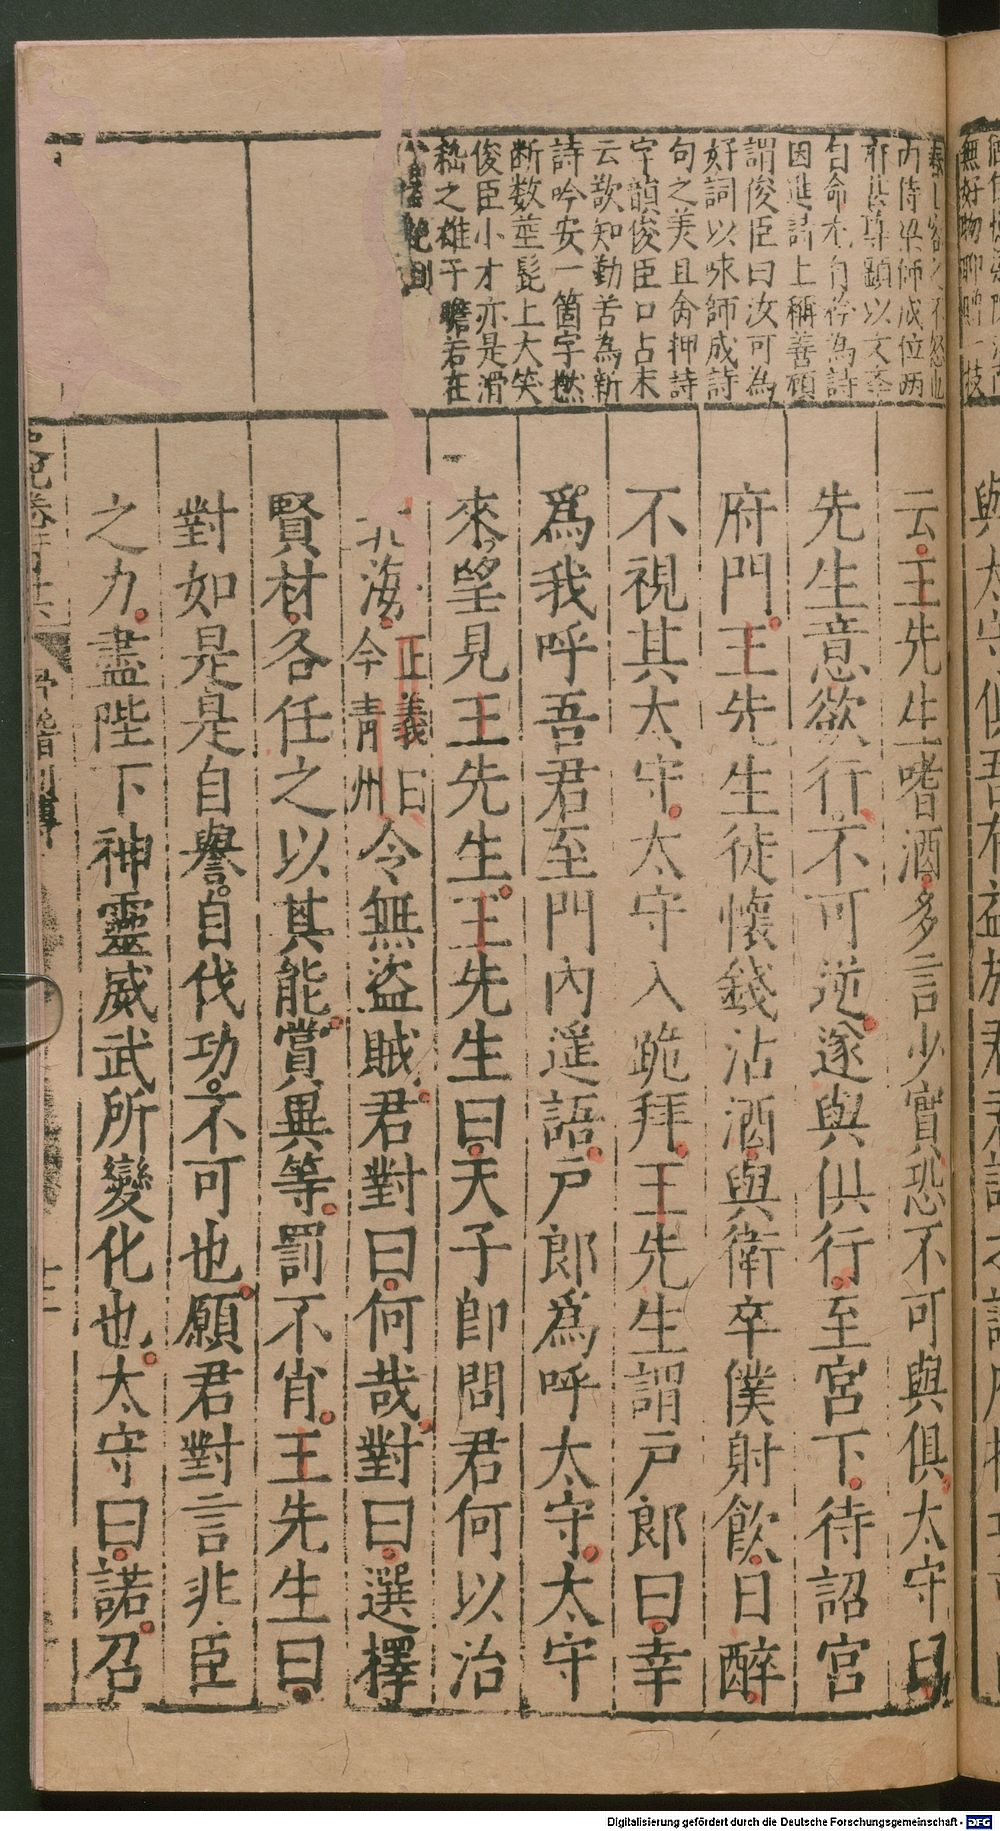 内侍梁師成位両
府甚尊顕以文奎
自命尤自矜為詩
因進詩上稱善顧
謂俊臣曰汝可為
好詞以咏師成詩
句之美且令押詩
字韻俊臣口占末
云歌知勤苦為新
詩吟安一箇字撚
断数莖髭上大笑
俊臣小才亦是滑
稽之雄于瞻若在
絶倒
云王先生嗜酒多言少實恐不可與俱太守曰
先生意欲行不可逆遂與俱行至宮下待詔宮
府門王先生徒懷錢沽酒與衛卒僕射飲日醉
不視其太守太守入跪拜王先生謂戶郎曰幸
爲我呼吾君至門內遥語戶郎爲呼太守太守
來望見王先生王先生曰天子即問君何以治
北海正義曰今青州令無盜賊君對曰何哉對曰選擇
賢材各任之以其能賞異等罰不肖王先生曰
對如是是自譽自伐功不可也願君對言非臣
之力盡陛下神靈威武所變化也太守曰諾召
史記卷
滑稽列傳
十二
Digitalisierung gefördert durch die Deutsche Forschungsgemeinschaft - DFG